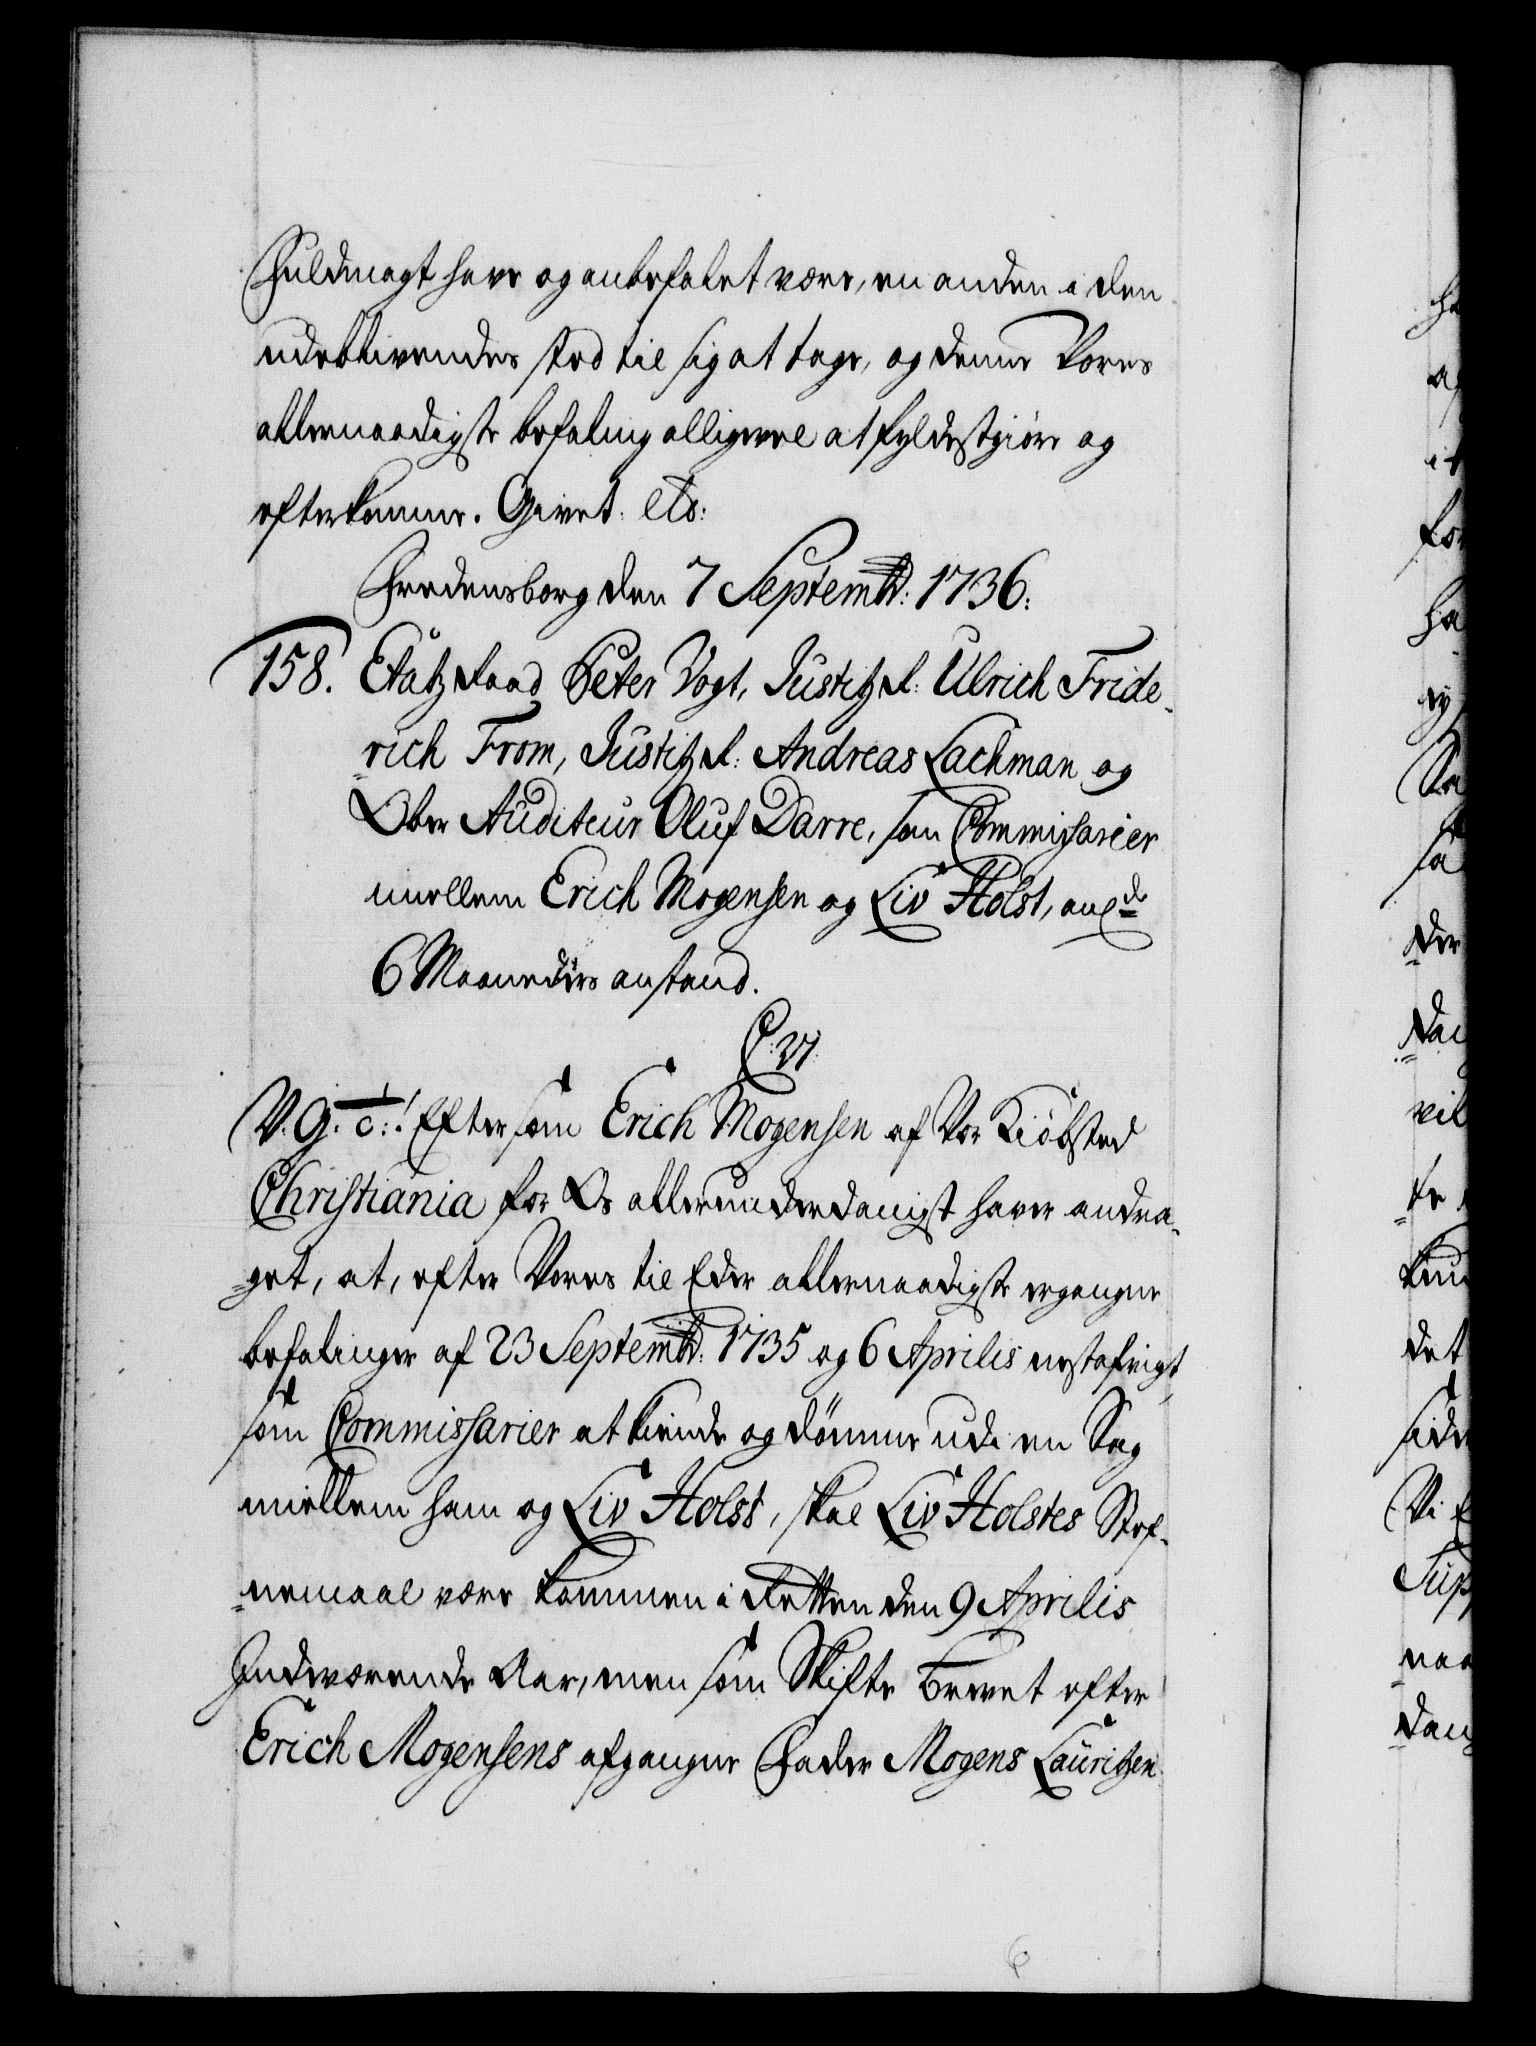 Fuldmagt have og anbefalet være, en anden i den
udeblivendes sted til sig at tage, og denne Vores
allernaadigste befaling alligevel at fyldestgiøre og
efterkomme. Givet. etc:
Fredensborg den 7 Septembr: 1736.
158. Etátz Raad Peter Vogt, Justitz R: Ulrich Fride-
rich From, Justitz R: Andreas Lachman og
Ober Auditeur Oluf Darre, som Commissarier
imellem Erich Mogensen og Liv Holst, ang de
6 Maaneders anstand.
C: VI:
V. G. c:! Eftersom Erich Mogensen af Vor Kiøbsted
Christiania for Os allerunderdanigst haver andra-
get, at, efter Vores til Eder allernaadigste ergangne
befalinger af 23 Septembr: 1735 og 6 Aprilis nestafvigt,
som Commissarier at kiende og dømme udi en Sag
imellem ham og Liv Holst, skal Liv Holstes Stef-
nemaal være kommen i Retten den 9 Aprilis
Indeværende Aar, men som Skifte Brevet efter
Erich Mogensens afgangne Fader Mogens Lauritzen